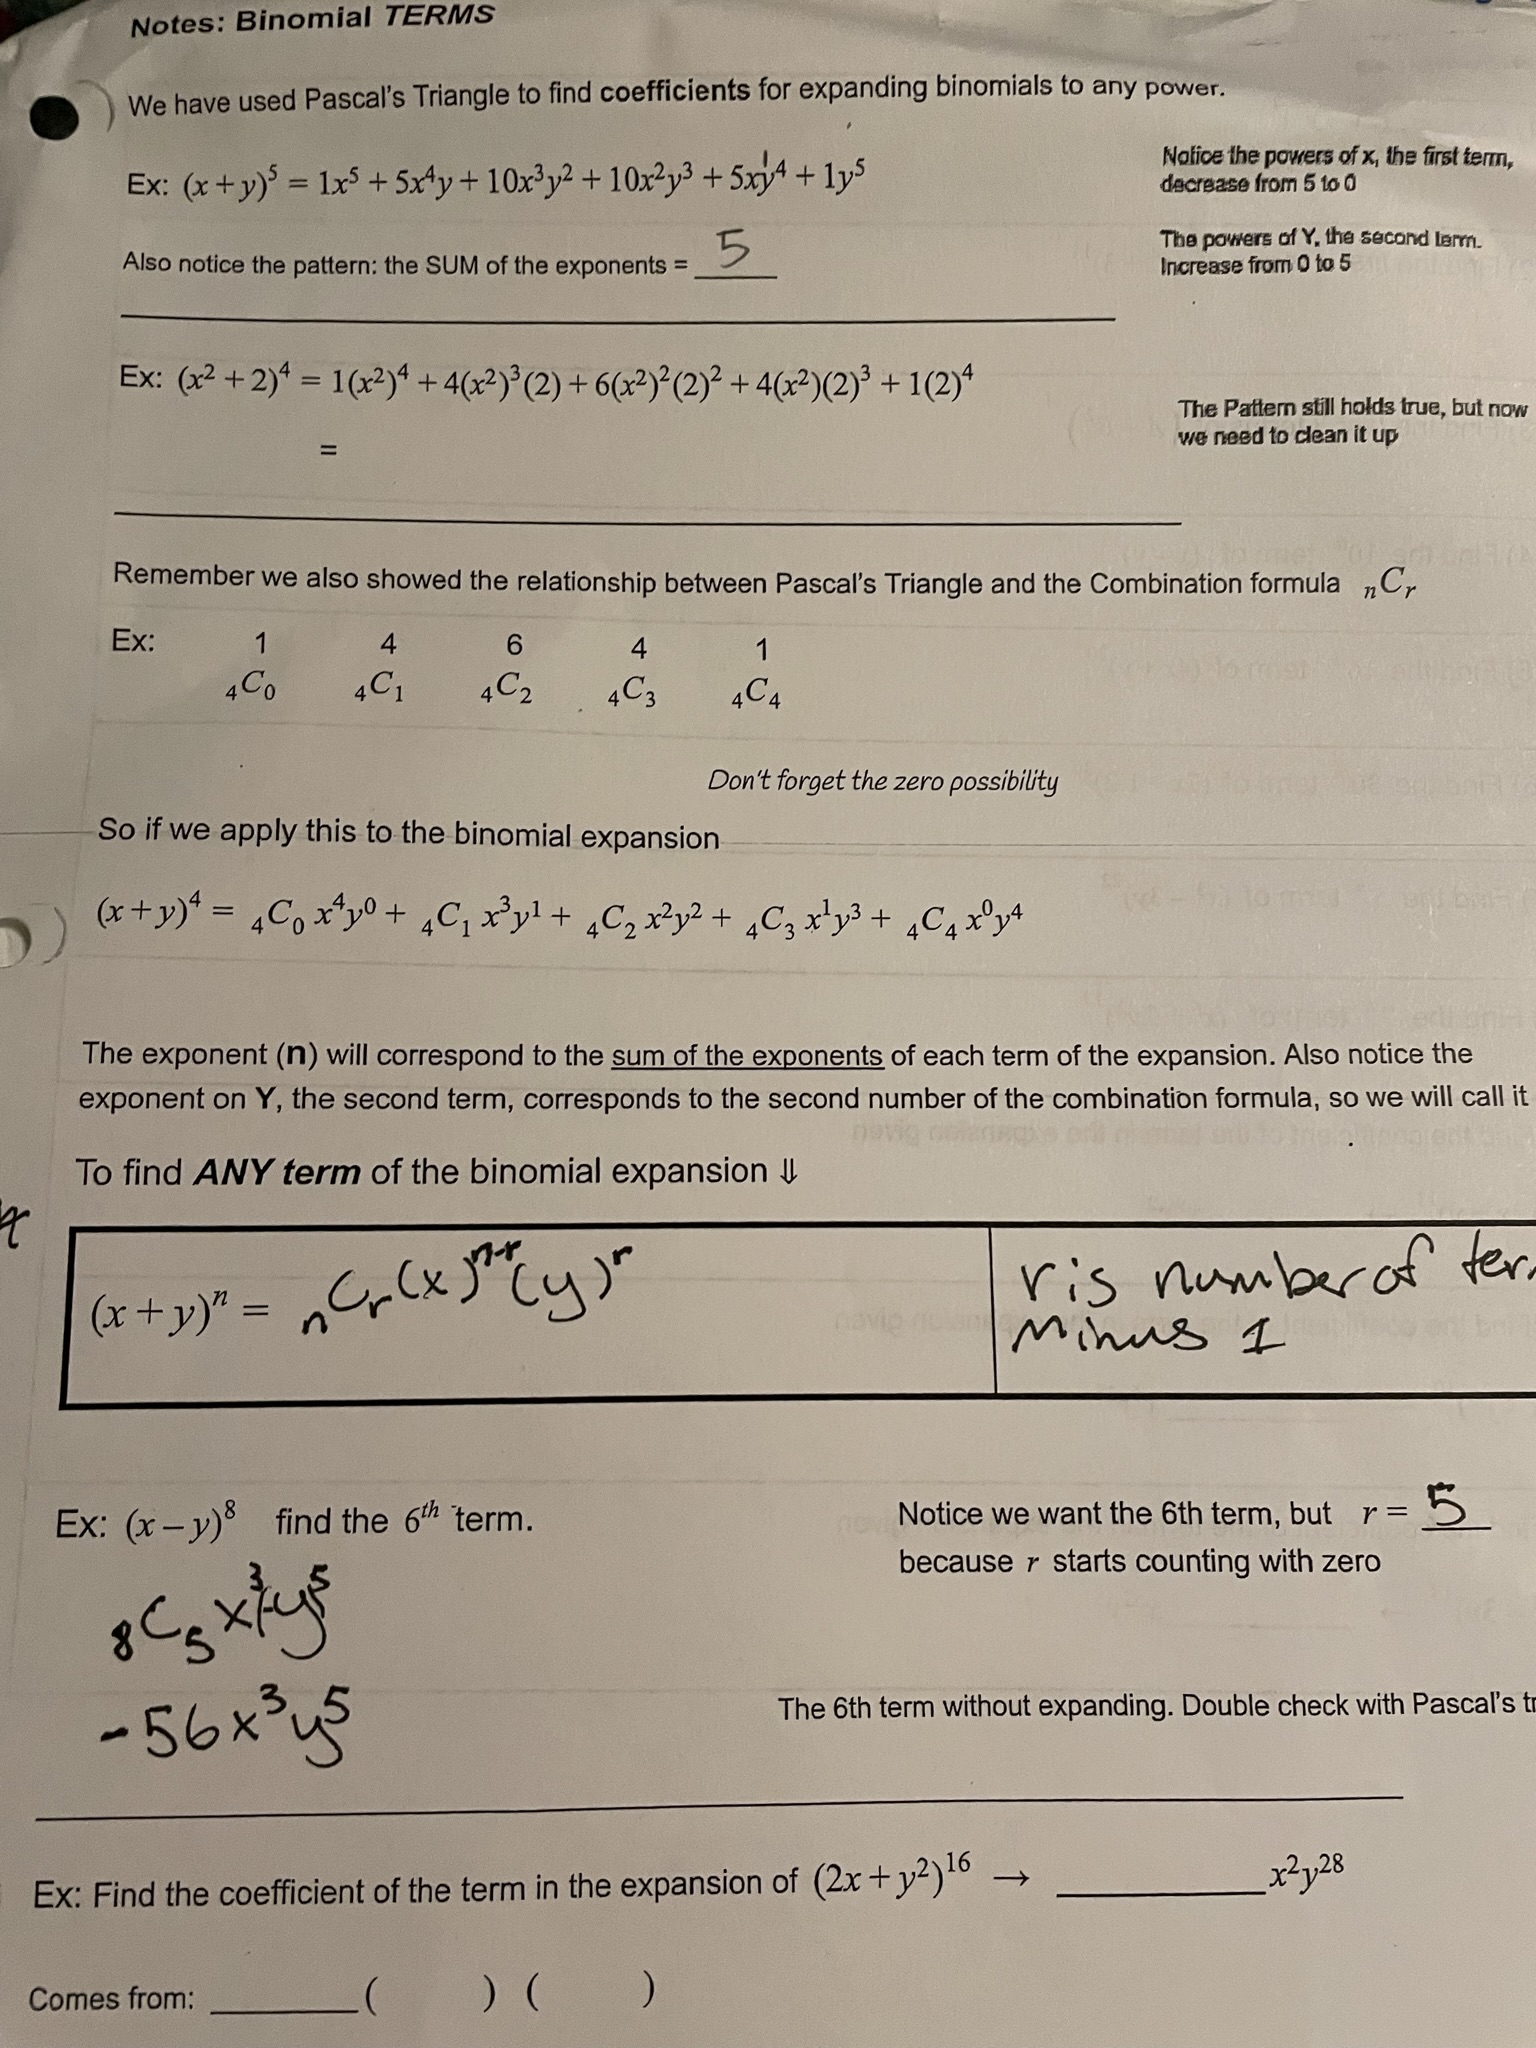 Notes: Binomial TERMS
We have used Pascal's Triangle to find coefficients for expanding binomials to any power.
Ex: (x+y)⁵ = 1x⁵ + 5x⁴y + 10x³y² + 10x²y³ + 5x¹y⁴ + 1y⁵
Notice the powers of x, the first term,
decrease from 5 to 0
The powers of Y, the second term.
Increase from 0 to 5
Also notice the pattern: the SUM of the exponents = 5
Ex: (x² + 2)⁴ = 1(x²)⁴ + 4(x²)³(2) + 6(x²)²(2)² + 4(x²)(2)³ + 1(2)⁴
The Pattern still holds true, but now
we need to clean it up
=
Remember we also showed the relationship between Pascal's Triangle and the Combination formula ₙCᵣ
Ex: 1 4 6 4 1
₄C₀ ₄C₁ ₄C₂ ₄C₃ ₄C₄
Don't forget the zero possibility
So if we apply this to the binomial expansion
(x+y)⁴ = ₄C₀ x⁴y⁰ + ₄C₁ x³y¹ + ₄C₂ x²y² + ₄C₃ x¹y³ + ₄C₄ x⁰y⁴
The exponent (n) will correspond to the sum of the exponents of each term of the expansion. Also notice the
exponent on Y, the second term, corresponds to the second number of the combination formula, so we will call it
To find ANY term of the binomial expansion ⇓
(x+y)ⁿ = ₙCᵣ(x)ⁿ⁻ʳ(y)ʳ
r is number of
minus 1
Ex: (x−y)⁸ find the 6ᵗʰ term.
Notice we want the 6th term, but r = 5
because r starts counting with zero
₈C₅x³(-y)⁵
-56x³y⁵
The 6th term without expanding. Double check with Pascal's
Ex: Find the coefficient of the term in the expansion of (2x+y²)¹⁶ → __________x²y²⁸
Comes from: _______( ) ( )